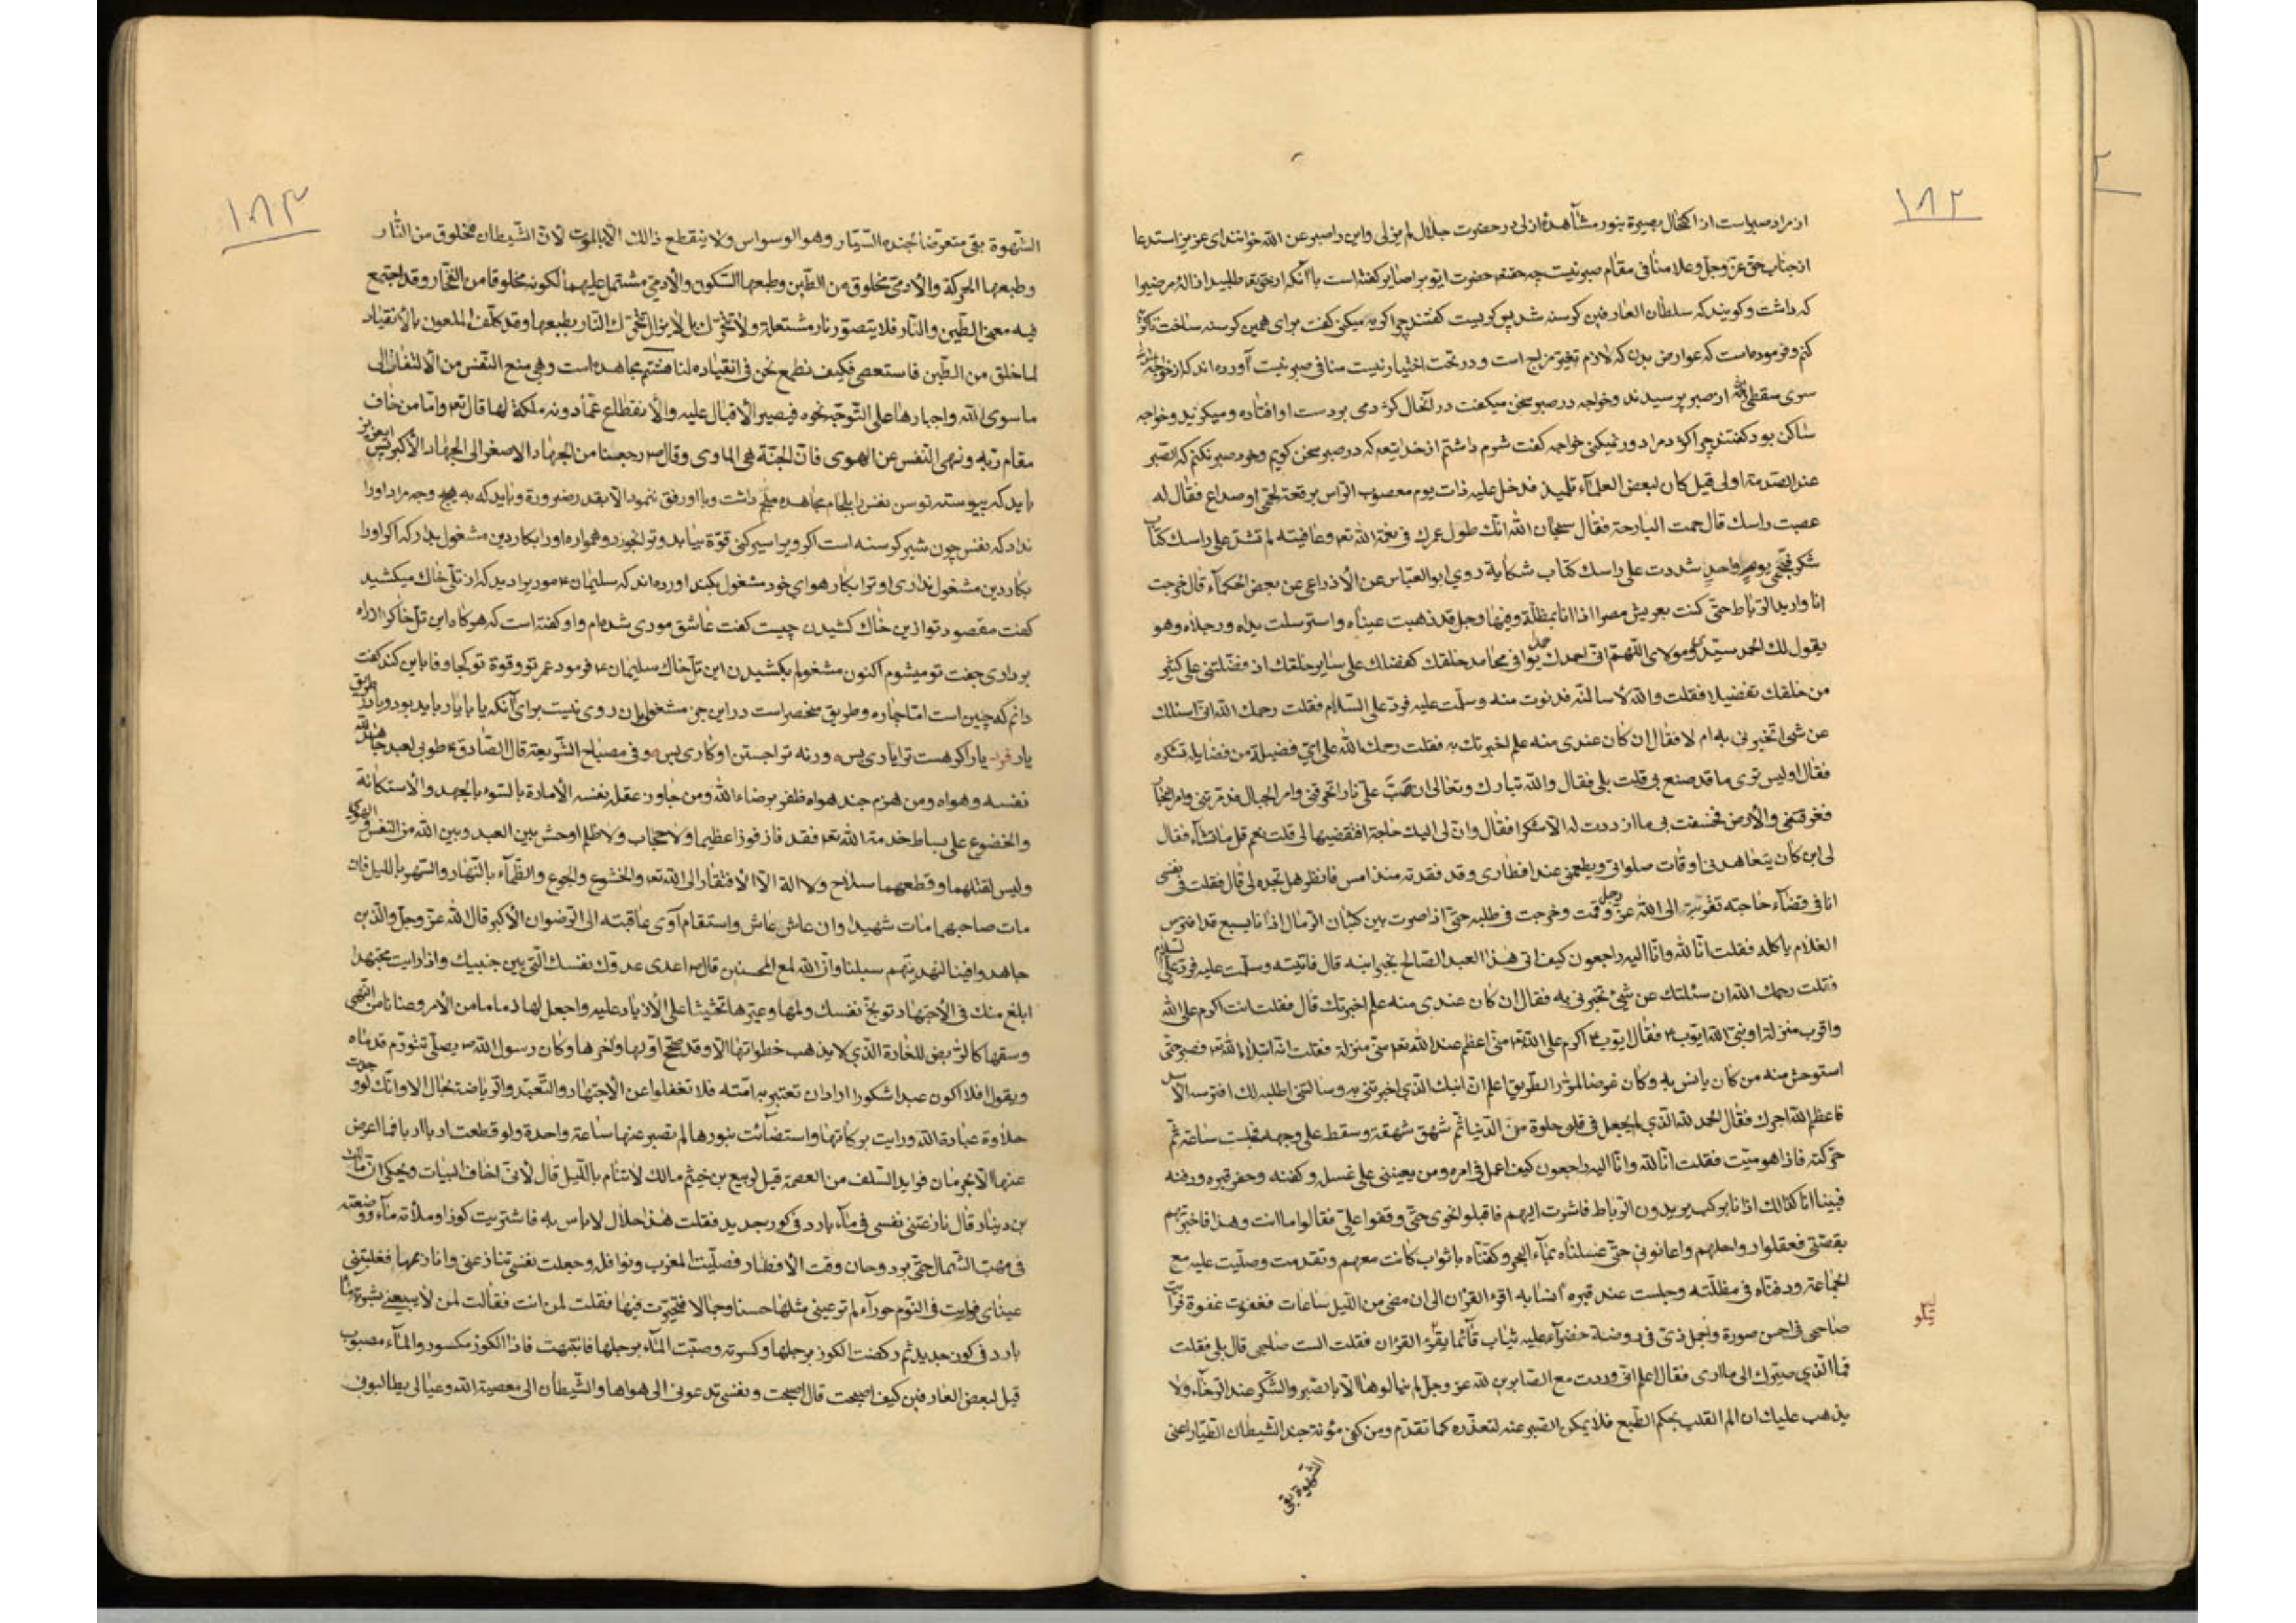 ١٨٢
از مراد صبر است از اکتحال بصیرة بنور مشاهدهٔ ازلی در حضرت جلال لم یزلی و این را صبر عن الله خوانند ای عزیز استدعا
از جناب حق عزّ وجلّ وعلا منافی مقام صبر نیست چه حقتعم حضرت ایوب را صابر کفته است با آنکه از حق تعم طلبید ازالهٔ مرضیرا
که داشت و کویند که سلطان العارفین کرسنه شد پس کریست کفتند چرا کریه میکنی کفت برای همین کرسنه ساخت تا کریه
کنم و فرموده است که عوارض بدن که لازم تغیّر مزاج است و در تحت اختیار نیست منافی صبر نیست آورده اند که از خواجه
سری سقطی از صبر پرسیدند و خواجه در صبر سخن میکفت در آنحال کژدمی بر دست او افتاده و میکزید و خواجه
ساکن بود کفتند چرا کژدم را دور نمیکنی خواجه کفت شرم داشتم از خدایتعم که در صبر سخن کویم و خود صبر نکنم که الصبر
عند الصدمة اولی قیل کان لبعض العلمآء تلمیذ فدخل علیه ذات یوم معصوب الرّاس برقعة لحمّی او صداع فقال له
عصبت راسك قال حمت البارحة فقال سبحان الله انّك طول عمرك فی نعمة الله تعم وعافیته لم تشدّ علی راسك کتاب
شکر فبحمّی یوم واحد شددت علی راسك کتاب شکایة روی ابو العبّاس عن الأوزاعی عن بعض الحکمآء قال خرجت
انا وارید الرّباط حتّی کنت بعریش مصر اذا انا بمظلّة وفیها رجل قد ذهبت عیناه واسترسلت یداه ورجلاه وهو
یقول لك الحمد سیّدی ومولای اللّهمّ انّی احمدك حمدا یوافی محامد خلقك کفضلك علی سایر خلقك اذ فضّلتنی علی کثیر
من خلقك تفضیلا فقلت والله لأسالنّه فدنوت منه وسلّمت علیه فردّ علیّ السّلام فقلت رحمك الله انّی اسئلك
عن شیء اتخبرنی به ام لا فقال ان کان عندی منه علم اخبرتك به فقلت رحمك الله علی ایّ فضیلة من فضایله تشکره
فقال اولیس تری ما قد صنع بی قلت بلی فقال والله تبارك وتعالی ان صبّ علیّ نارا تحرقنی وامر الجبال فدمّرتنی وامر البحار
فغرقتنی والأرض فخسفت بی ما ازددت له الّا شکرا فقال وانّ لی الیك حاجة افتقضیها لی قلت نعم قل ما تشآء فقال
لی ابن کان یتعاهدنی اوقات صلواتی ویطعمنی عند افطاری وقد فقدته منذ امس فانظر هل تجده لی قال فقلت فی نفسی
انّ فی قضآء حاجته تقرّب الی الله عزّ وجل وقمت وخرجت فی طلبه حتّی اذا صرت بین کثبان الرّمال اذا انا بسبع قد افترس
الغلام یاکله فقلت انّا لله وانّا الیه راجعون کیف اتی هذا العبد الصّالح بخبر ابنه قال فاتیته وسلّمت علیه فردّ علیّ السّلام
فقلت رحمك الله ان سئلتك عن شیء تخبرنی به فقال ان کان عندی منه علم اخبرتك قال فقلت انت اکرم علی الله
واقرب منزلة او نبیّ الله ایوب فقال ایّوب اکرم علی الله تعم منّی اعظم عند الله تعم منّی منزلة فقلت انّه ابتلاه الله تعم فصبر حتّی
استوحش منه من کان یانس به وکان غرضا لمرّار الطّریق اعلم انّ ابنك الّذی اخبرتنی به وسالتنی اطلبه لك افترسه الاسد
فاعظم الله اجرك فقال الحمد لله الّذی لم یجعل فی قلبی حلوة من الدّنیا ثمّ شهق شهقة وسقط علی وجهه فلبث ساعة ثمّ
حرّکته فاذا هو میّت فقلت انّا لله وانّا الیه راجعون کیف اعمل فی امره ومن یعیننی علی غسله وکفنه وحفر قبره ودفنه
فبینا انا کذالك اذ انا برکب یریدون الرّباط فاشرت الیهم فاقبلوا نحوی حتّی وقفوا علیّ فقالوا ما انت وهذا فاخبرتهم
بقصّتی فعقلوا رواحلهم واعانونی حتّی غسلناه بمآء البحر وکفنّاه باثواب کانت معهم وتقدمت وصلّیت علیه مع
الجماعة ودفنّاه فی مظلّته وجلست عند قبره انسا به اقرء القرآن الی ان مضی من اللّیل ساعات فغفوت غفوة فرایت
صاحبی فی احسن صورة واجمل زیّ فی روضة خضرآء علیه ثیاب قآئما یقرء القرآن فقلت الست صاحبی قال بلی فقلت
فما الّذی صیّرك الی ما اری فقال اعلم انّی وردت مع الصّابرین لله عزّ وجلّ لم ینالوها الّا بالصّبر والشّکر عند الرّخآء ولا
یذهب علیك ان الم القلب بحکم الطّبع فلا یمکن الصّبر عنه لتعذّره کما تقدّم ومن کفی مؤنة جند الشّیطان الطیّار اعنی
الشّهوة بقی
١٨٣
الشّهوة بقی متعرّضا لجنده السّیّار وهو الوسواس ولا ینقطع ذالك الّا بالموت لانّ الشّیطان مخلوق من النّار
وطبعها الحرکة والأدمی مخلوق من الطّین وطبعها السّکون والأدمی مشتمل علیهما لکونه مخلوقا من الفخّار وقد اجتمع
فیه معنی الطّین والنّار فلا یتصوّر نار مشتعلة ولا تتحرّك بل لا یزال تتحرّك النّار بطبعها وقد کلّف الملعون بالأنقیاد
لما خلق من الطّین فاستعصی فکیف نطمع نحن فی انقیاده لنا هشتم مجاهده است وهی منع النّفس من الألتفات الی
ما سوی الله واجبارها علی التّوجّه نحوه فیصیر الأقبال علیه والأنقطاع عمّا دونه ملکة لها قال تعم وامّا من خاف
مقام ربّه ونهی النّفس عن الهوی فانّ الجنّة هی الماوی وقال ص رجعنا من الجهاد الاصغر الی الجهاد الأکبر پس ایعزیز
باید که پیوسته توسن نفس را بلجام مجاهده ملجم داشت وبا او رفق ننمود الّا بقدر ضرورة وباید که به هیچ وجه مراد او را
نداد که نفس چون شیر کرسنه است اکر ویرا سیر کنی قوّة بیابد و ترا بخورد و همواره او را بکار دین مشغول بدار که اکر او را
بکار دین مشغول نداری او ترا بکار هوای خود مشغول بکند اورده اند که سلیمان ع مور یرا دید که از تلّی خاك میکشید
کفت مقصود تو ازین خاك کشیدن چیست کفت عاشق موری شده ام و او کفته است که هرکاه این تلّ خاکرا از راه
برداری جفت تو میشوم اکنون مشغولم بکشیدن این تلّ خاك سلیمان ع فرمود عمر تو و قوة تو کجا وفا باین کند کفت
دانم که چنین است امّا چاره و طریق منحصر است در این جز مشغولی بان روی نیست برای آنکه یا با یار باید بود و یا در طریق
یار فرد یار اکر هست ترا یاری بس ورنه ترا جستن او کاری بس وفی مصباح الشّریعة قال الصّادق ع طوبی لعبد جاهد لله
نفسه وهواه ومن هزم جند هواه ظفر برضاء الله ومن جاوز عقله نفسه الأمارة بالسّوء بالجهد والأستکانة
والخضوع علی بساط خدمة الله تعم فقد فاز فوزا عظیما ولا حجاب ولا ظلم اوحش بین العبد وبین الله من النّفس والهوی
ولیس لقتلهما وقطعهما سلاح ولا الة الّا الأفتقار الی الله تعم والخشوع والجوع والظّمآء بالنّهار والسّهر باللّیل فان
مات صاحبهما مات شهیدا وان عاش عاش واستقام آوی عاقبته الی الرّضوان الأکبر قال الله عزّ وجلّ والّذین
جاهدوا فینا لنهدینّهم سبلنا وانّ الله لمع المحسنین قال ص اعدی عدوّك نفسك الّتی بین جنبیك واذا رایت مجتهدا
ابلغ منك فی الأجتهاد توبّخ نفسك ولمها وعیّرها تحثیثا علی الأزدیاد علیه واجعل لها زماما من الأمر وعنانا من النّهی
وسقها کالرّائض للفارة الّذی لا یذهب خطواتها الّا وقد صحّح اوّلها واخرها وکان رسول الله ص یصلّی تتورّم قدماه
ویقول افلا اکون عبدا شکورا اراد ان تعتبر به امّته فلا تغفلوا عن الأجتهاد والتّعبّد والرّیاضة بحال الا وانّك لو وجدت
حلاوة عبادة الله ورایت برکاتها واستضائت بنورها لم تصبر عنها ساعة واحدة ولو قطعت اربا اربا فما اعرض
عنها الّا بحرمان فواید السّلف من العصمة قیل لربیع بن خیثم مالك لا تنام باللّیل قال لأنّی اخاف البیات ویحکی انّ مالك
بن دینار قال نازعتنی نفسی فی مآء بارد فی کوز جدید فقلت هذا حلال لا باس به فاشتریت کوزا وملأته مآء ووضعته
فی مهبّ الشّمال حتّی برد وحان وقت الأفطار فصلّیت المغرب ونوافله وجعلت نفسی تنازعنی وانازعها فغلبتنی
عینای فرایت فی النّوم حورآء لم تر عینی مثلها حسنا وجمالا فتحیّرت فیها فقلت لمن انت فقالت لمن لا یبیعنی بشربة مآء
بارد فی کوز جدید ثم رکضت الکوز برجلها وکسرته وصبّت المآء برجلها فانتبهت فاذا الکوز مکسور والمآء مصبوب
قیل لبعض العارفین کیف اصبحت قال اصبحت ونفسی تدعونی الی هواها والشّیطان الی معصیة الله وعیالی یطالبونی